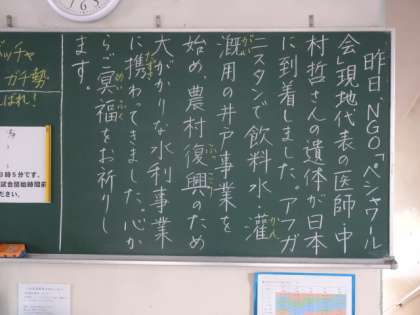 昨日、NGO「ペシャワール
会」現地代表の医師・中
村哲さんの遺体が日本
に到着しました。アフガ
ニスタンで飲料水・灌
かん
漑用の井戸事業を
がい
始め、農村復興のため
ふっこう
大がかりな水利事業
に携わってきました。心か
たずさ
らご冥福をお祈りし
めいふく
ます。
ボッチャ
ガチ勢